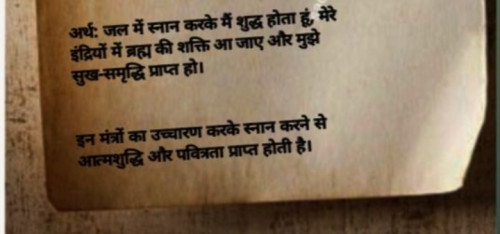 अर्थ: जल में स्नान करके मैं शुद्ध होता हूं, मेरे
इंद्रियों में ब्रह्म की शक्ति आ जाए और मुझे
सुख-समृद्धि प्राप्त हो।
इन मंत्रों का उच्चारण करके स्नान करने से
आत्मशुद्धि और पवित्रता प्राप्त होती है।